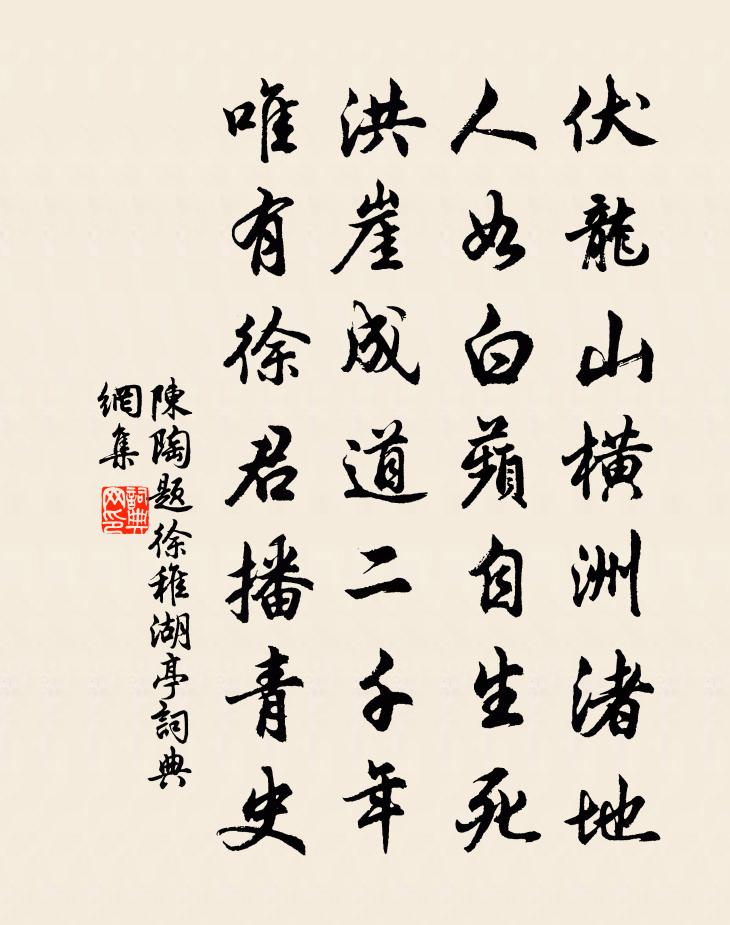 伏龍山橫洲渚地
人如白蘋自生死
洪崖成道二千年
唯有徐君播青史
陳陶題徐稚湖亭詞典
網集
詞典網印